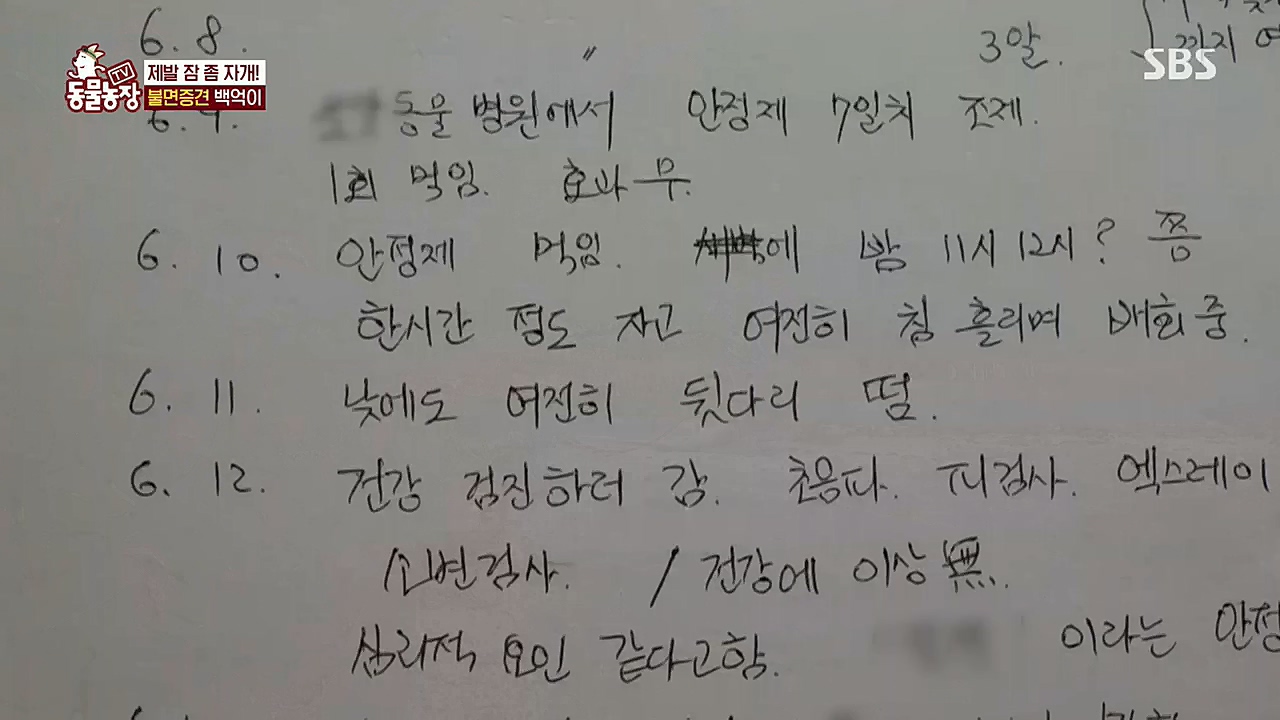 TV
동물농장
제발 잠 좀 자개!
불면증견 백억이
SBS
6. 8. 〃 3알.
까지
6. 9. 동물병원에서 안정제 7일치 조제.
1회 먹임. 효과 무.
6. 10. 안정제 먹임. 에 밤 11시 12시? 쯤
한시간 정도 자고 여전히 침 흘리며 배회 중.
6. 11. 낮에도 여전히 뒷다리 떰.
6. 12. 건강 검진하러 감. 초음파. 피검사. 엑스레이
/소변검사. / 건강에 이상 無.
심리적 요인 같다고함. 이라는 안정